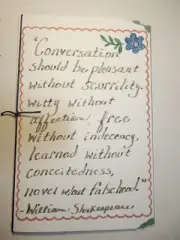 "Conversation
should be pleasant
without scurrility.
witty without
affection, free
without indecency,
learned without
conceitedness,
novel w/out falsehood."
-William Shakespeare